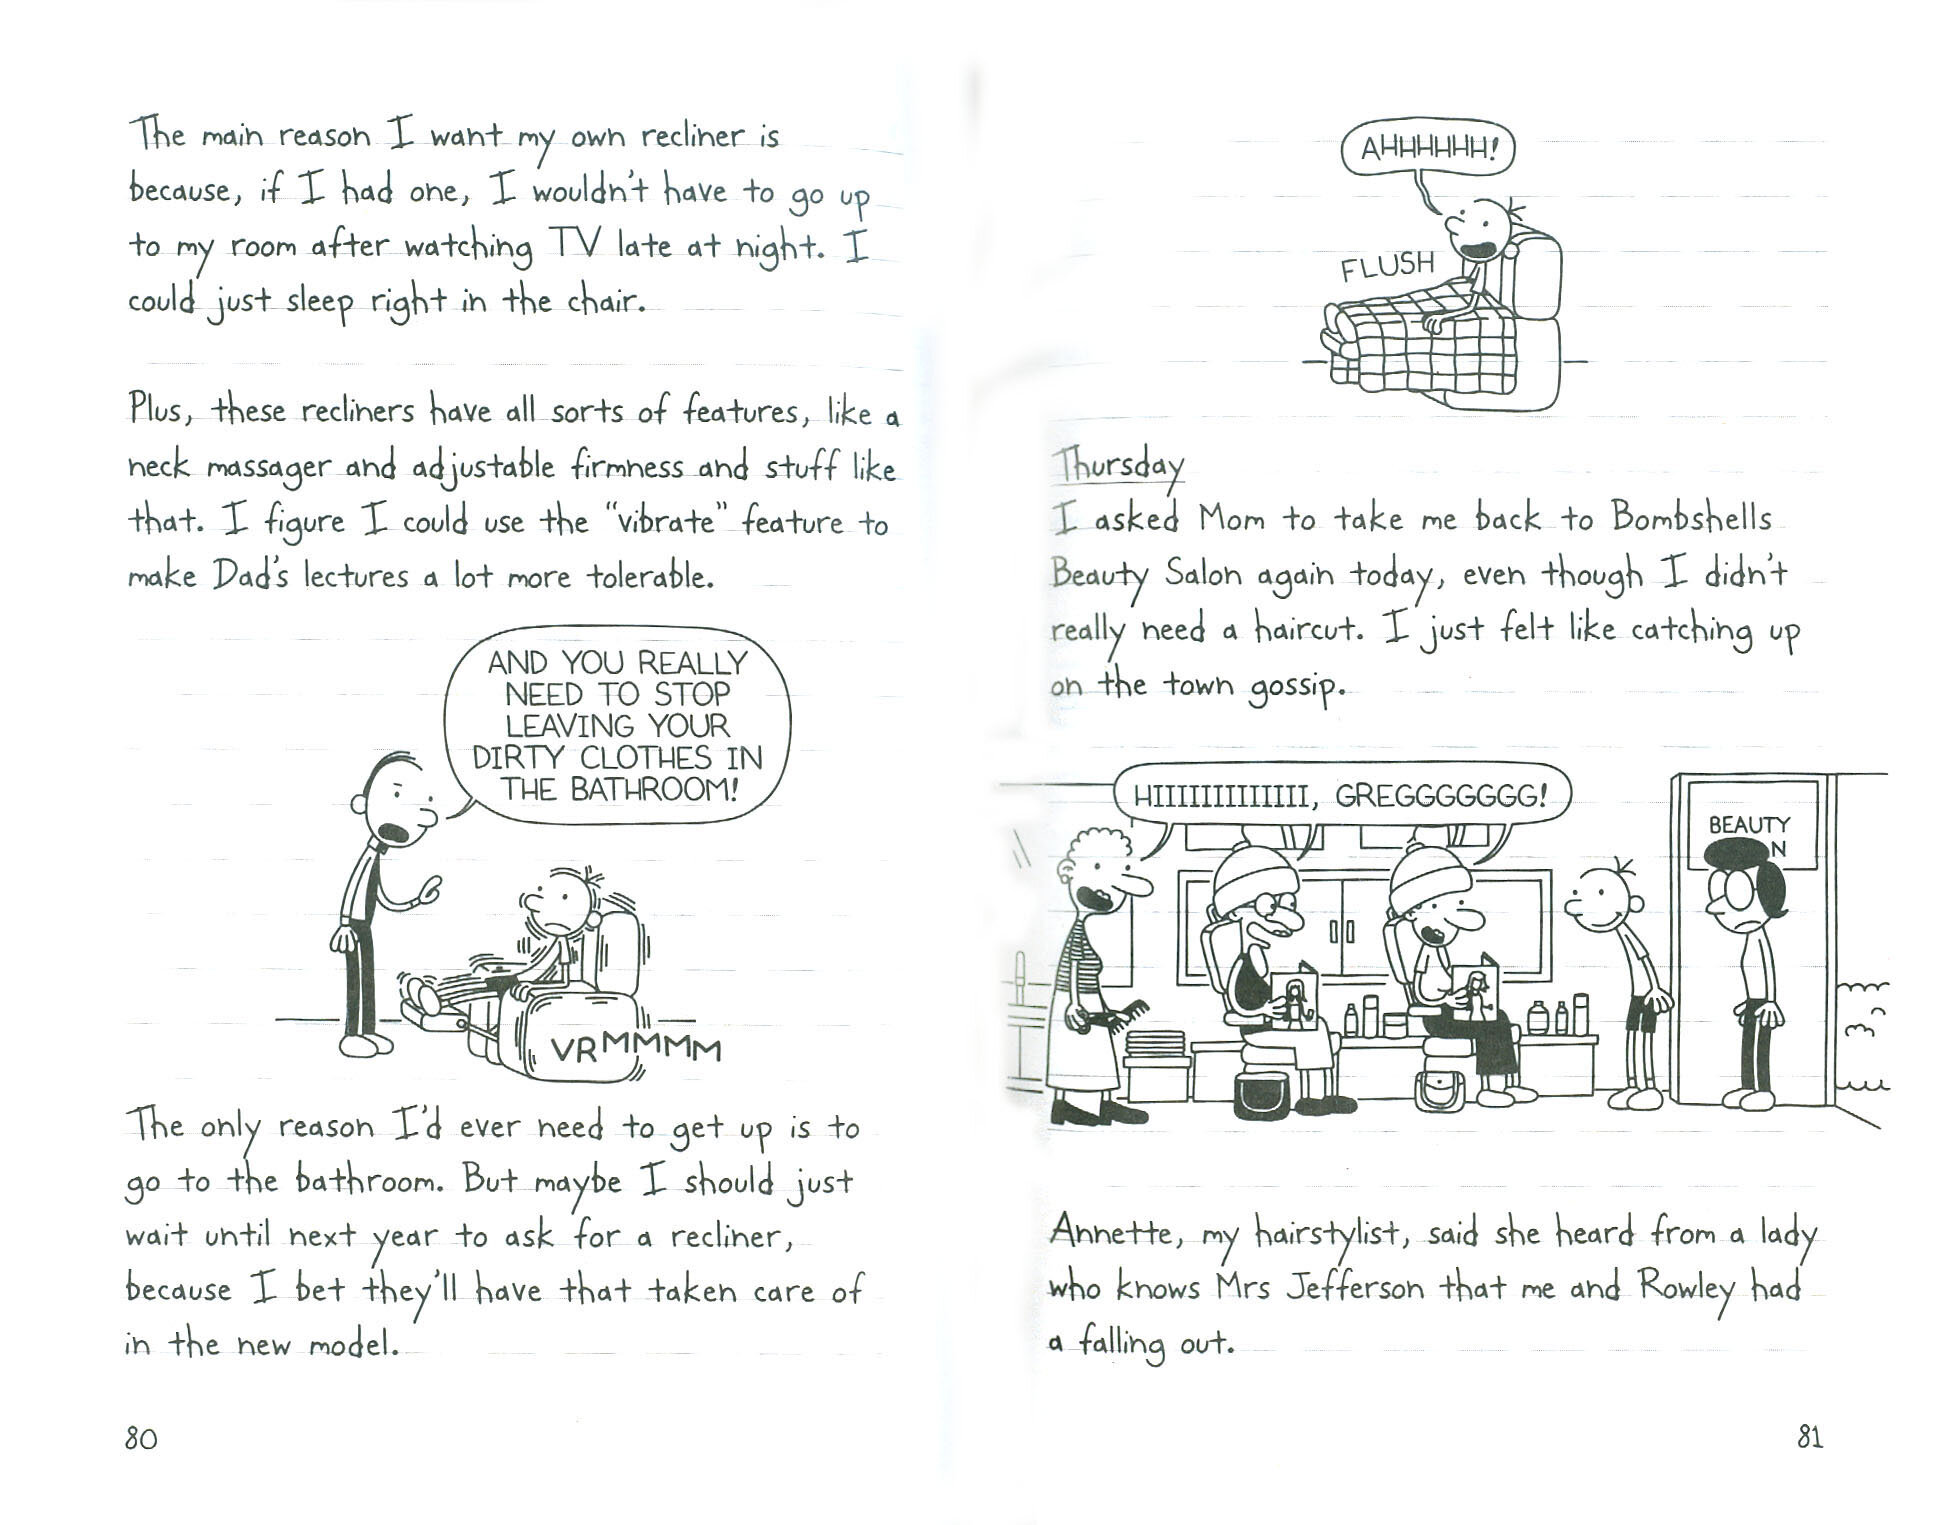 The main reason I want my own recliner is
because, if I had one, I wouldn't have to go up
to my room after watching TV late at night. I
could just sleep right in the chair.
Plus, these recliners have all sorts of features, like a
neck massager and adjustable firmness and stuff like
that. I figure I could use the "vibrate" feature to
make Dad's lectures a lot more tolerable.
AND YOU REALLY
NEED TO STOP
LEAVING YOUR
DIRTY CLOTHES IN
THE BATHROOM!
VRMMMMM
The only reason I'd ever need to get up is to
go to the bathroom. But maybe I should just
wait until next year to ask for a recliner,
because I bet they'll have that taken care of
in the new model.
80
AHHHHHH!
FLUSH
Thursday
I asked Mom to take me back to Bombshells
Beauty Salon again today, even though I didn't
really need a haircut. I just felt like catching up
on the town gossip.
HIIIIIIIIIIIIII, GREGGGGGGG!
BEAUTY
N
Annette, my hairstylist, said she heard from a lady
who knows Mrs Jefferson that me and Rowley had
a falling out.
81